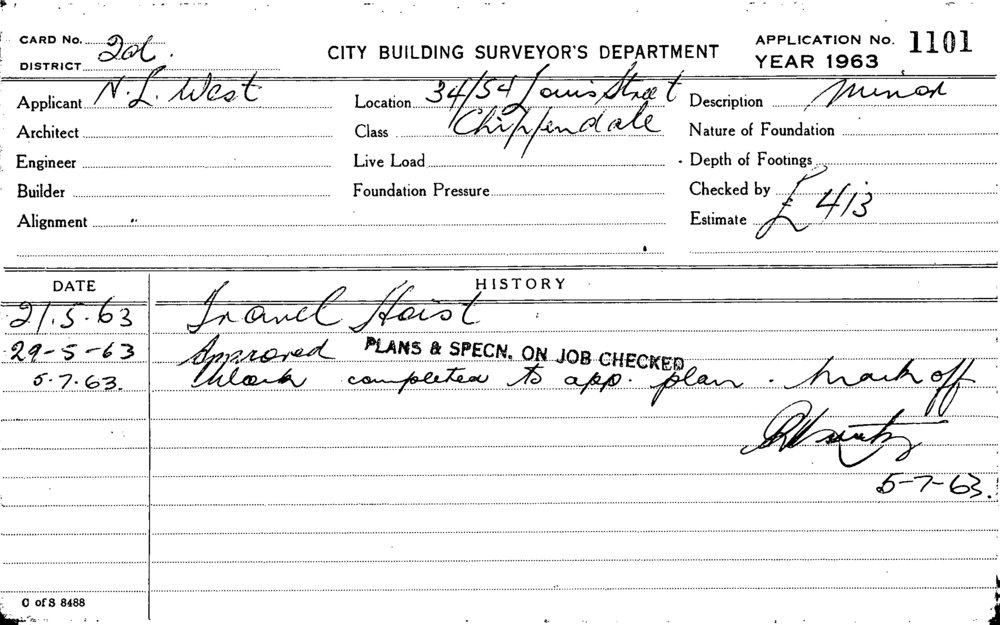 CARD No. 2a
DISTRICT
CITY BUILDING SURVEYOR'S DEPARTMENT
APPLICATION No. 1101
YEAR 1963
Applicant N. L. West
Location 34/54 Louis Street
Description Minor
Architect
Class Chippendale
Nature of Foundation
Engineer
Live Load
Depth of Footings
Builder
Foundation Pressure
Checked by
Alignment "
Estimate £ 413
DATE
HISTORY
21.5.63 Travel Hoist
29-5-63 Approved PLANS & SPECN. ON JOB CHECKED
5.7.63. Work completed to app. plan. Mark off
5-7-63.
C of S 8488